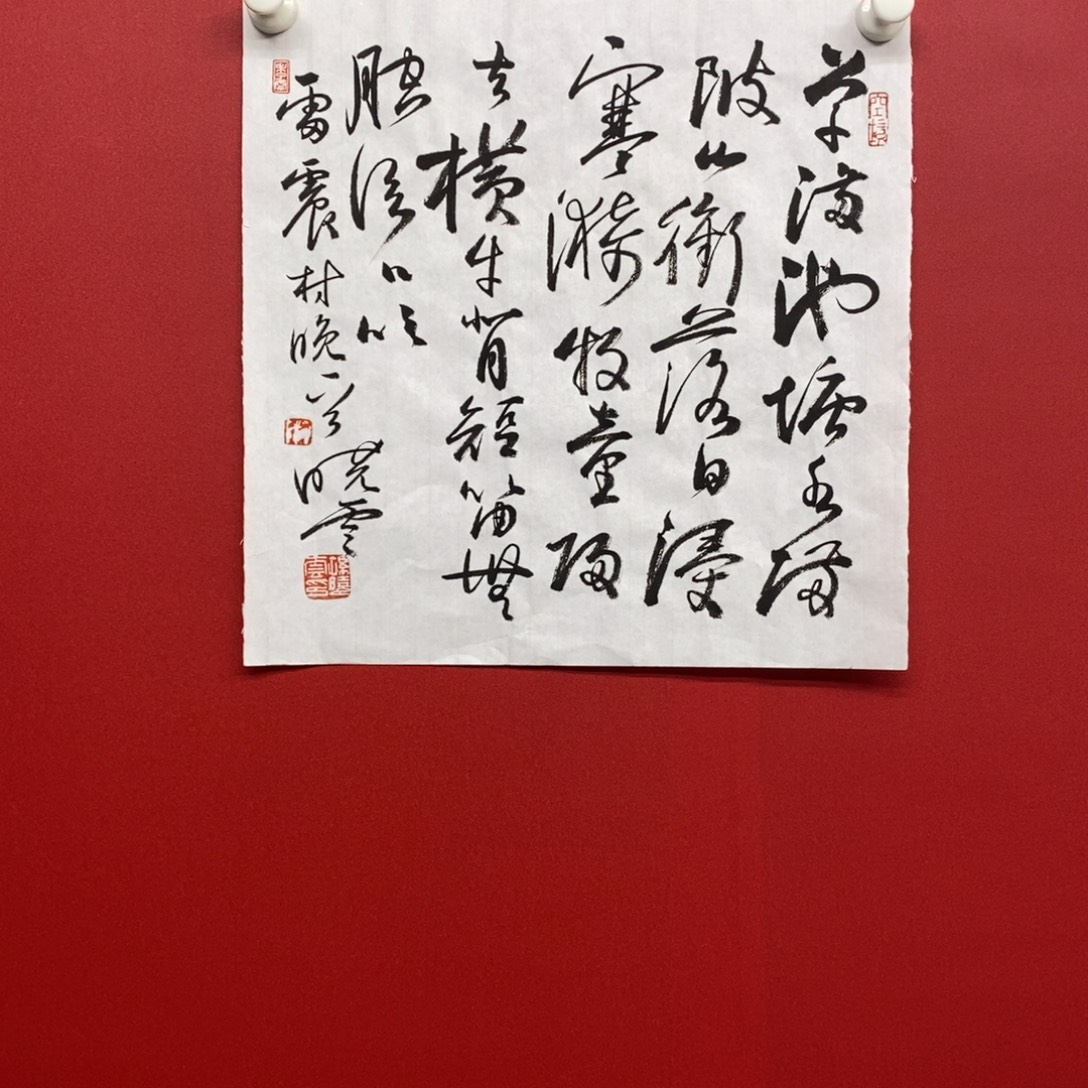 草滿池塘水滿
陂山銜落日浸
寒漪牧童歸
去橫牛背短笛無
腔信口吹
雷震村晚一首 曉雲
孫曉雲印